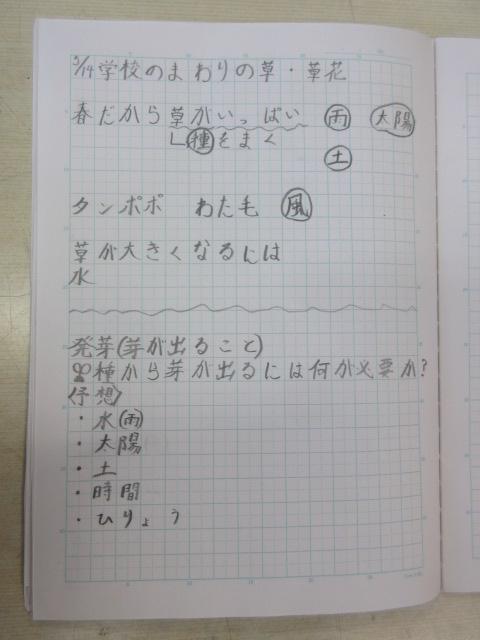 5/14学校のまわりの草・草花
春だから草がいっぱい 雨 太陽
└種をまく
土
タンポポ わた毛 風
草が大きくなるには
水
発芽(芽が出ること)
種から芽が出るには何が必要か?
〈予想〉
・水(雨)
・太陽
・土
・時間
・ひりょう